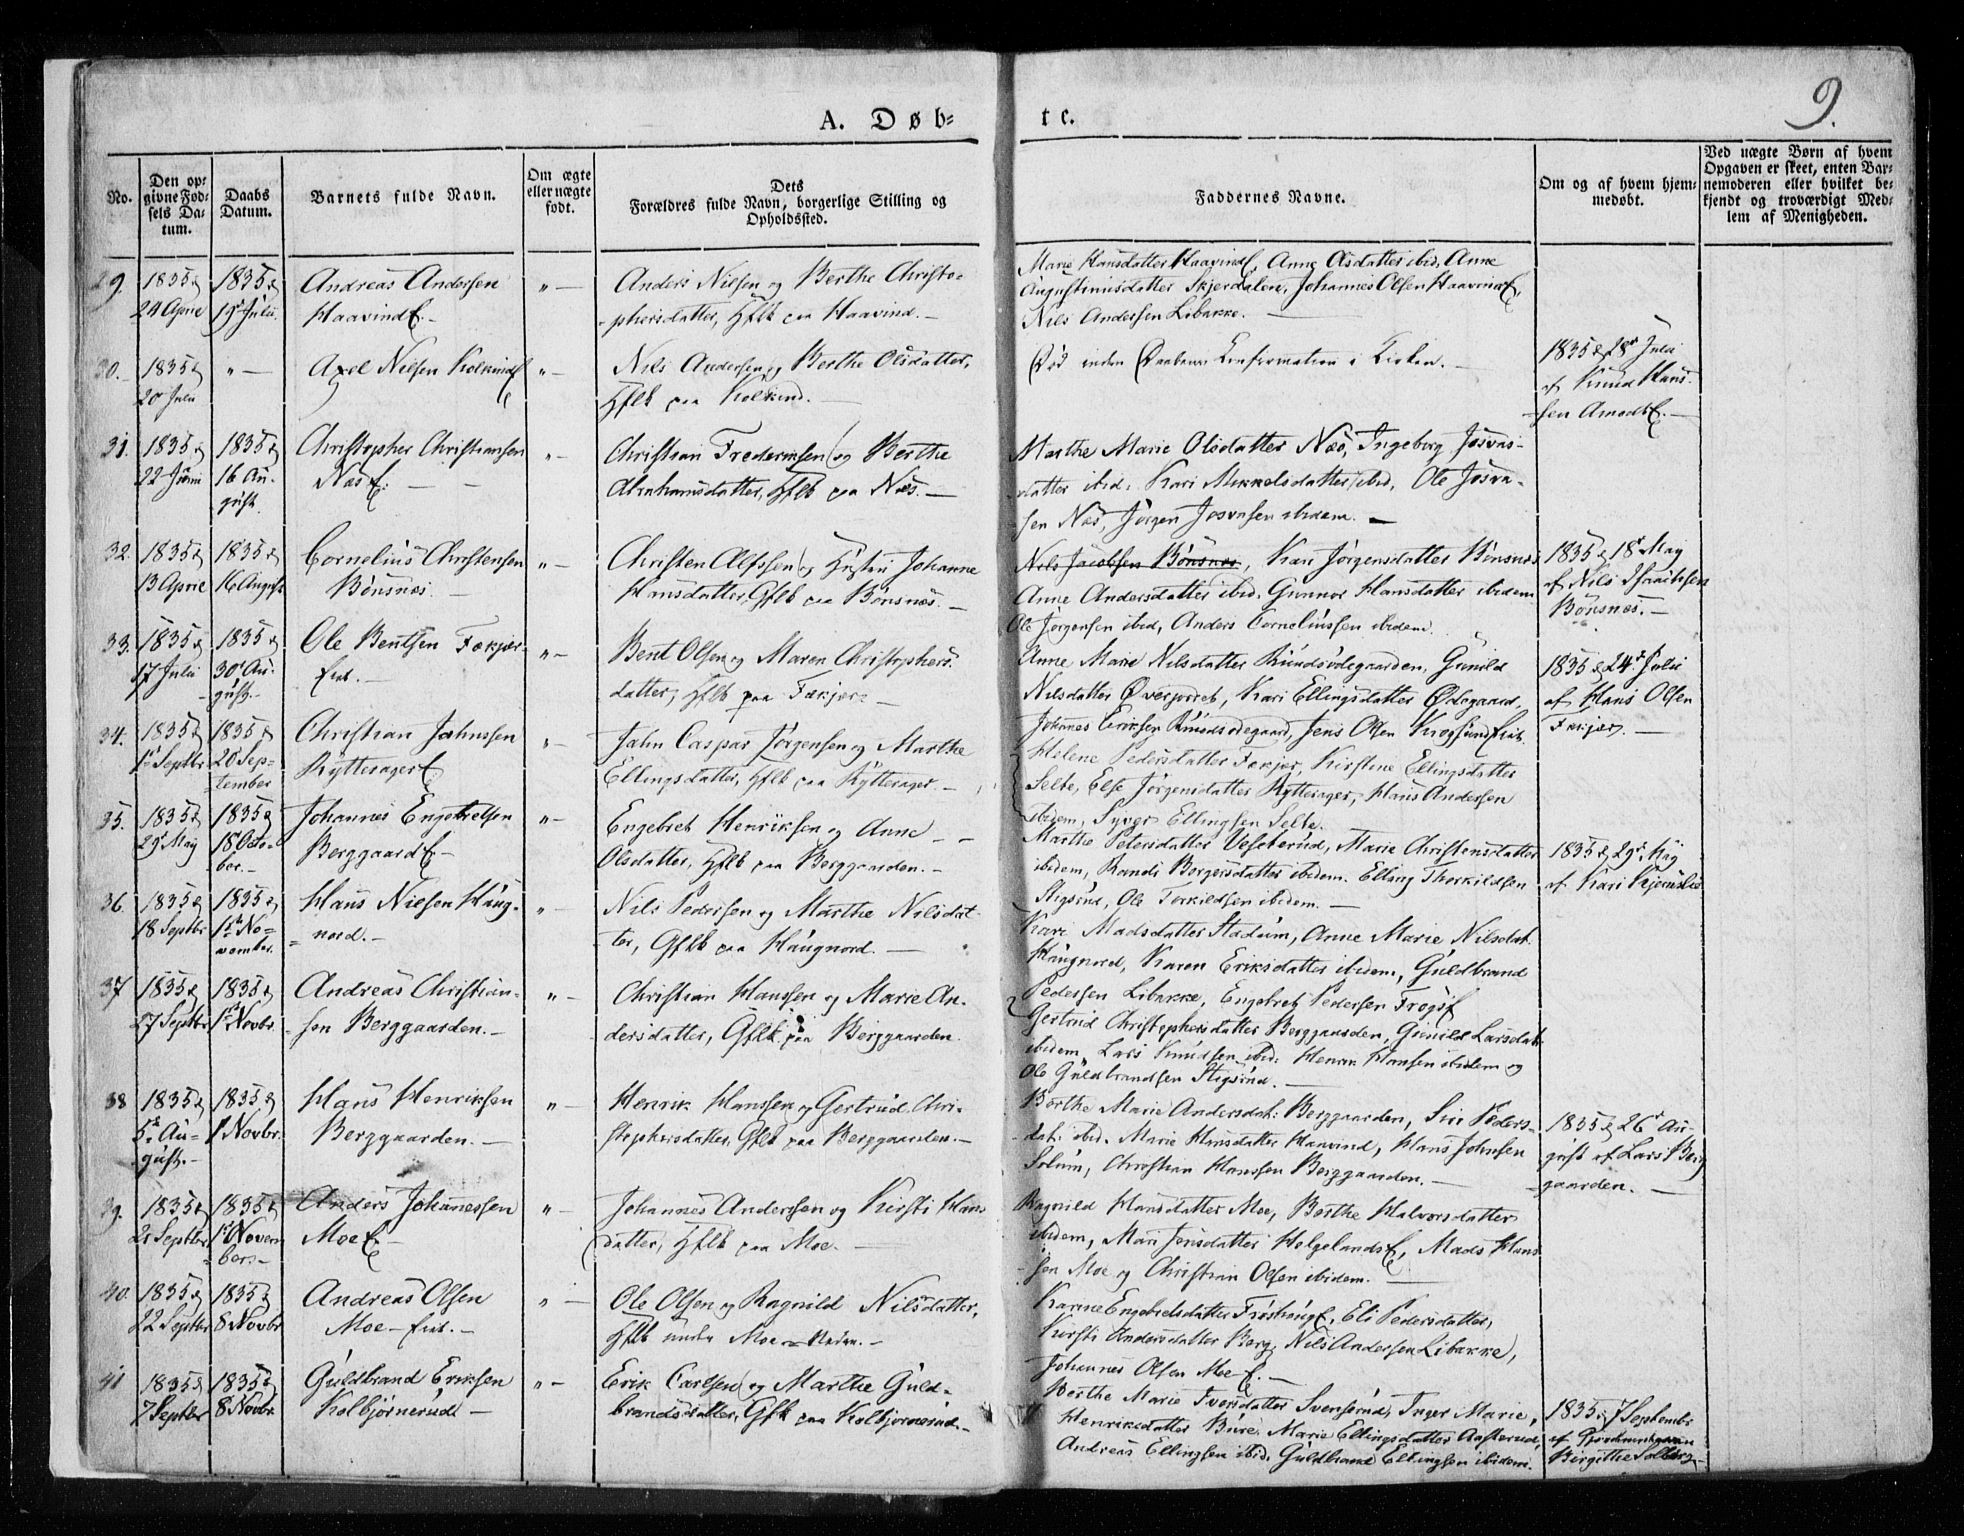 9.
A. Døb=
te.
No.
Den op=
givne Fød=
sels Da=
tum.
Daabs
Datum.
Barnets fulde Navn.
Om ægte
eller uægte
født.
Dets
Forældres fulde Navn, borgerlige Stilling og
Opholdssted.
Faddernes Navne.
Om og af hvem hjem=
medøbt.
Ved uægte Børn af hvem
Opgaven er skeet, enten Bar=
nemoderen eller hvilket be=
kjendt og troværdigt Med=
lem af Menigheden.
29.
1835
24 Aprie
1835
19 Julii
Andreas Andersen
Haavind
" —
Anders Nielsen og Berthe Christo=
phersdatter, Gflk paa Haavind. —
Marie Hansdatter Haavind, Anne Olsdatter ibid, Anne
Augustinusdatter Skjerdalen, Johannes Olsen Haavind
Nils Andersen Libakke. —
30.
1835
20 Julii
" —
Axel Nielsen Kolkind
" —
Nils Andersen og Berthe Olsdatter,
Gflk paa Kolkind. —
Død inden Daabens Confirmation i Kirken. —
1835 28 Julii
af Knud Hans=
sen
31.
1835
22 Juni
1835
16 Au=
gust.
Christopher Christiansen
Næs
" —
Christian Frederiksen og Berthe
Abrahamsdatter, Gflk paa Næs. —
Marthe Marie Olsdatter Næs, Ingeborg Josvas=
datter ibid. Kari Mikkelsdatter ibid, Ole Josva=
sen Næs, Jørgen Josvasen ibidem. —
32.
1835
13 Aprie
1835
16 August
Cornelius Christensen
Bønsnæs. —
" —
Christen Alfssen og Johanne
Hansdatter, Gflk paa Bønsnæs. —
Nils Jacobsen Bønsnæs, Kari Jørgensdatter Bønsnæs
Anne Andersdatter ibid, Gunnor Hansdatter ibidem
Ole Jørgensen ibid, Anders Corneliussen ibidem.
1835 18 May
af Nils
Bønsnæs. —
33.
1835
17 Julii
1835
30 Au=
gust. —
Ole Bentsen Fækjer=
eiet. —
" —
Bent Olsen og Maren Christophers=
datter, Gflk paa Fækjer —
Anne Marie Nilsdatter Rundsødegaarden, Gunild
Nilsdatter Øverjordet, Kari Ellingsdatter Ødegaard,
Johannes Eriksen Rundsødegaard, Jens Olsen
1835 24 Julii
af Hans Olsen
Fækjer. —
34.
1835
1 Septbr
1835
20 Sep=
tember
Christian Jahnssen
Rytterager
" —
Jahn Caspar Jørgensen og Marthe
Ellingsdatter, Gflk paa Rytterager. —
Helene Pedersdatter Fækjer, Kirstine Ellingsdatter
Selte, Else Jørgensdatter Rytterager, Hans Andersen
ibidem, Syver Ellingsen Selte.
35.
1835
29 May
1835
18 Octo=
ber. —
Johannes Engebretsen
Berggaard
" —
Engebret Henriksen og Anne —
Olsdatter, Gflk paa Berggaarden. —
Marthe Petersdatter Vesterud, Marie Christensdatter
ibidem, Randi Borgersdatter ibidem. Elling Thorkildsen
Stigsrud, Ole Torkildsen ibidem. —
1835 29 May
af Kari
36.
1835
18 Septbr
1835
1 No=
vember.
Hans Nielsen Haug=
nord. —
" —
Nils Pedersen og Marthe Nilsdat=
ter, Gflk paa Haugnord. —
Kari Madsdatter Stadum, Anne Marie Nilsdat.
Haugnord, Karen Eriksdatter ibidem, Guldbrand
Pedersen Libakke, Engebret Pedersen
37
1835
27 Septbr
1835
1 Novbr.
Andreas Christian=
sen Berggaarden. —
" —
Christian Hanssen og Marie An=
dersdatter, Gflk paa Berggaarden.
Gertrud Christophersdatter Berggaarden, Gunild Larsdat:
ibidem, Lars Knudsen ibid. Henrik Hansen ibidem og
Ole Guldbrandsen Stigsrud. —
38
1835
5 Au=
gust. —
1835
1 Novbr.
Hans Henriksen
Berggaarden. —
" —
Henrik Hanssen og Gertrud Chri=
stophersdatter, Gflk paa Berggaarden. —
Berthe Marie Andersdat: Berggaarden, Siri Peders=
dat: ibid. Marie Hansdatter Haavind, Hans Johnsen
Solum, Christian Hanssen Berggaarden. —
1835 26 Au=
gust af Lars Berg
gaarden. —
39.
1835
21 Septbr
1835
1 Novem
ber. —
Anders Johanessen
Moe
" —
Johannes Andersen og Kirsti Hans
datter, Gflk paa Moe. —
Ragnild Hansdatter Moe, Berthe Halvorsdatter
ibidem, Mari Jensdatter Helgeland, Mads Hans=
sen Moe og Christian Olsen ibidem. —
40.
1835
22 Septbr
1835
8 Novbr
Andreas Olsen
Moe-eiet. —
" —
Ole Olsen og Ragnild Nilsdatter,
Gflk under Moe —
Karine Engebretsdatter Frøshaug, Eli Pedersdatter,
Kirsti Andersdatter Berg, Nils Andersen Libakke,
Johannes Olsen Moe —
41
1835
7 Septbr
1835
8 Novbr.
Guldbrand Eriksen
Kolbjørnerud —
" —
Erik Carlsen og Marthe Guld=
brandsdatter, Gflk paa Kolbjørnerud. —
Berthe Marie Iversdatter Svenserud, Inger Marie
Henriksdatter Bure, Marie Ellingsdatter Aasterud,
Andreas Ellingsen ibid. Guldbrand Ellingsen ibidem.
1835 7 September
af
Birgitte Solberg —